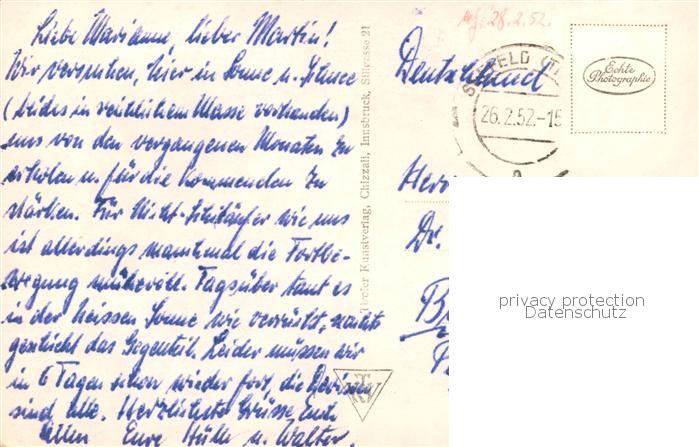 Liebe Marianne, lieber Martin!
Wir versuchen, hier in Sonne u. Schnee
(beides in reichlichem Masse vorhanden)
uns von den vergangenen Monaten zu
erholen u. für die kommenden zu
stärken. Für Nicht-Schiläufer wie uns
ist allerdings manchmal die Fortbe-
wegung mühevoll. Tagsüber taut es
in der heissen Sonne wie verrückt, nachts
geschieht das Gegenteil. Leider müssen wir
in 6 Tagen schon wieder fort, die Devisen
sind alle. Herzlichste Grüsse Euch
allen Eure Hülle u. Walter.
Tiroler Kunstverlag, Chizzali, Innsbruck, Sillgasse 21
TKV
28.2.52.
Deutschland
SEEFELD (TIROL)
26.2.52-15
a
Echte
Photographie
Herrn
Dr.
privacy protection
Datenschutz